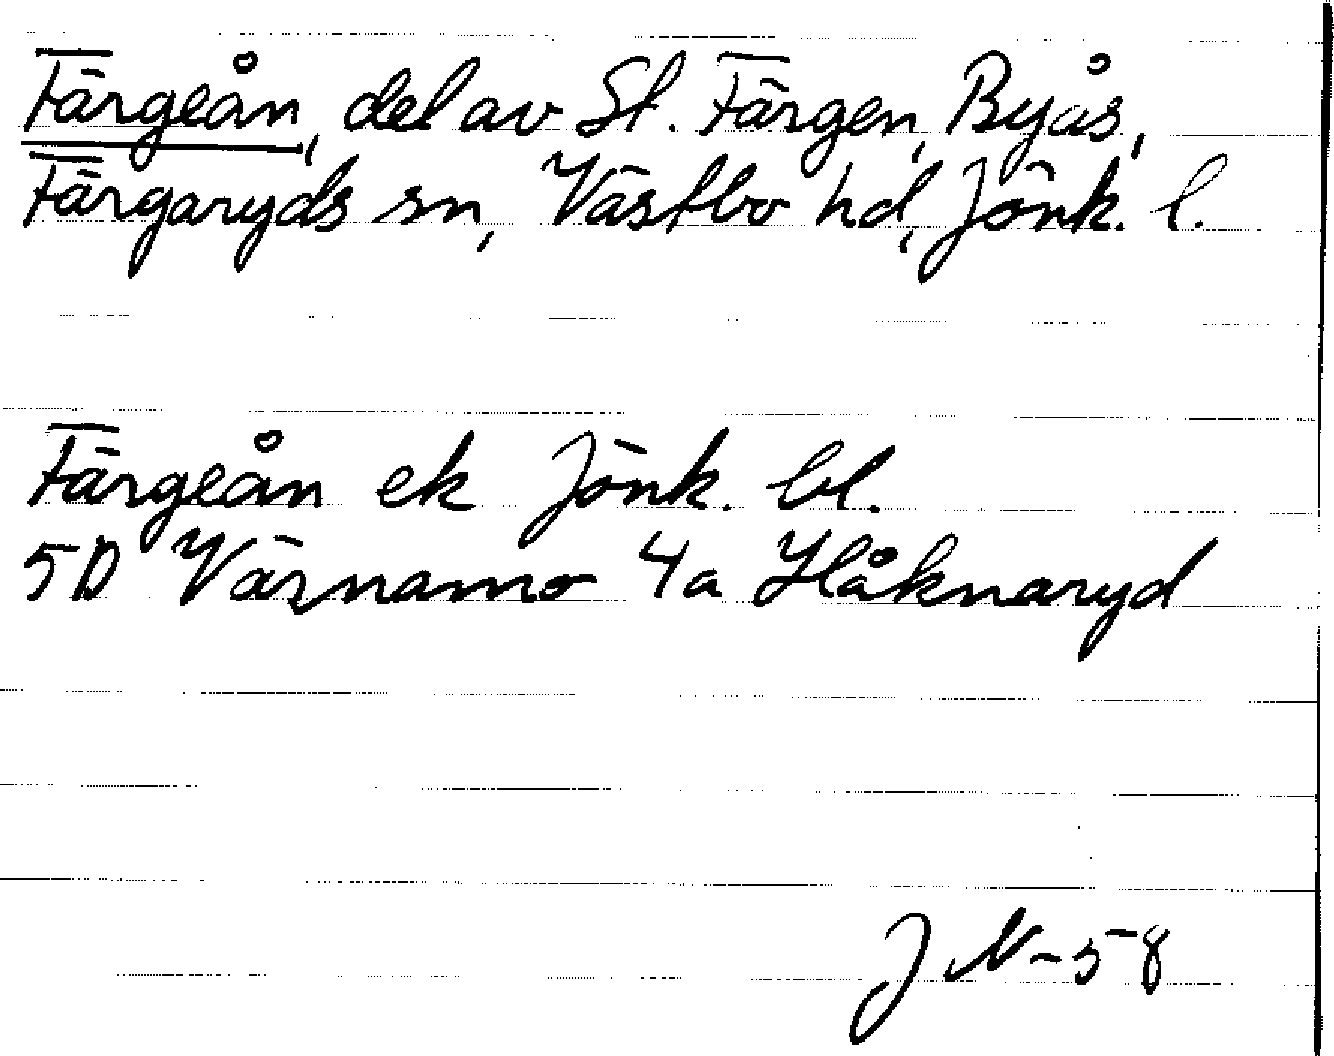 Färgeån, del av St. Färgen, Byås,
Färgaryds sn, Västbo hd, Jönk. l.
Färgeån ek Jönk. bl.
5D Värnamo 4a Håknaryd
J N-58